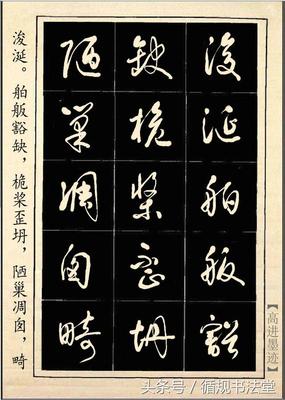 浚涎舶舨豁
缺桅桨歪坍
陋巢凋囱畸
浚涎。舶舨豁缺，桅桨歪坍，陋巢凋囱，畸
【高进墨迹】
头条号／循规书法堂